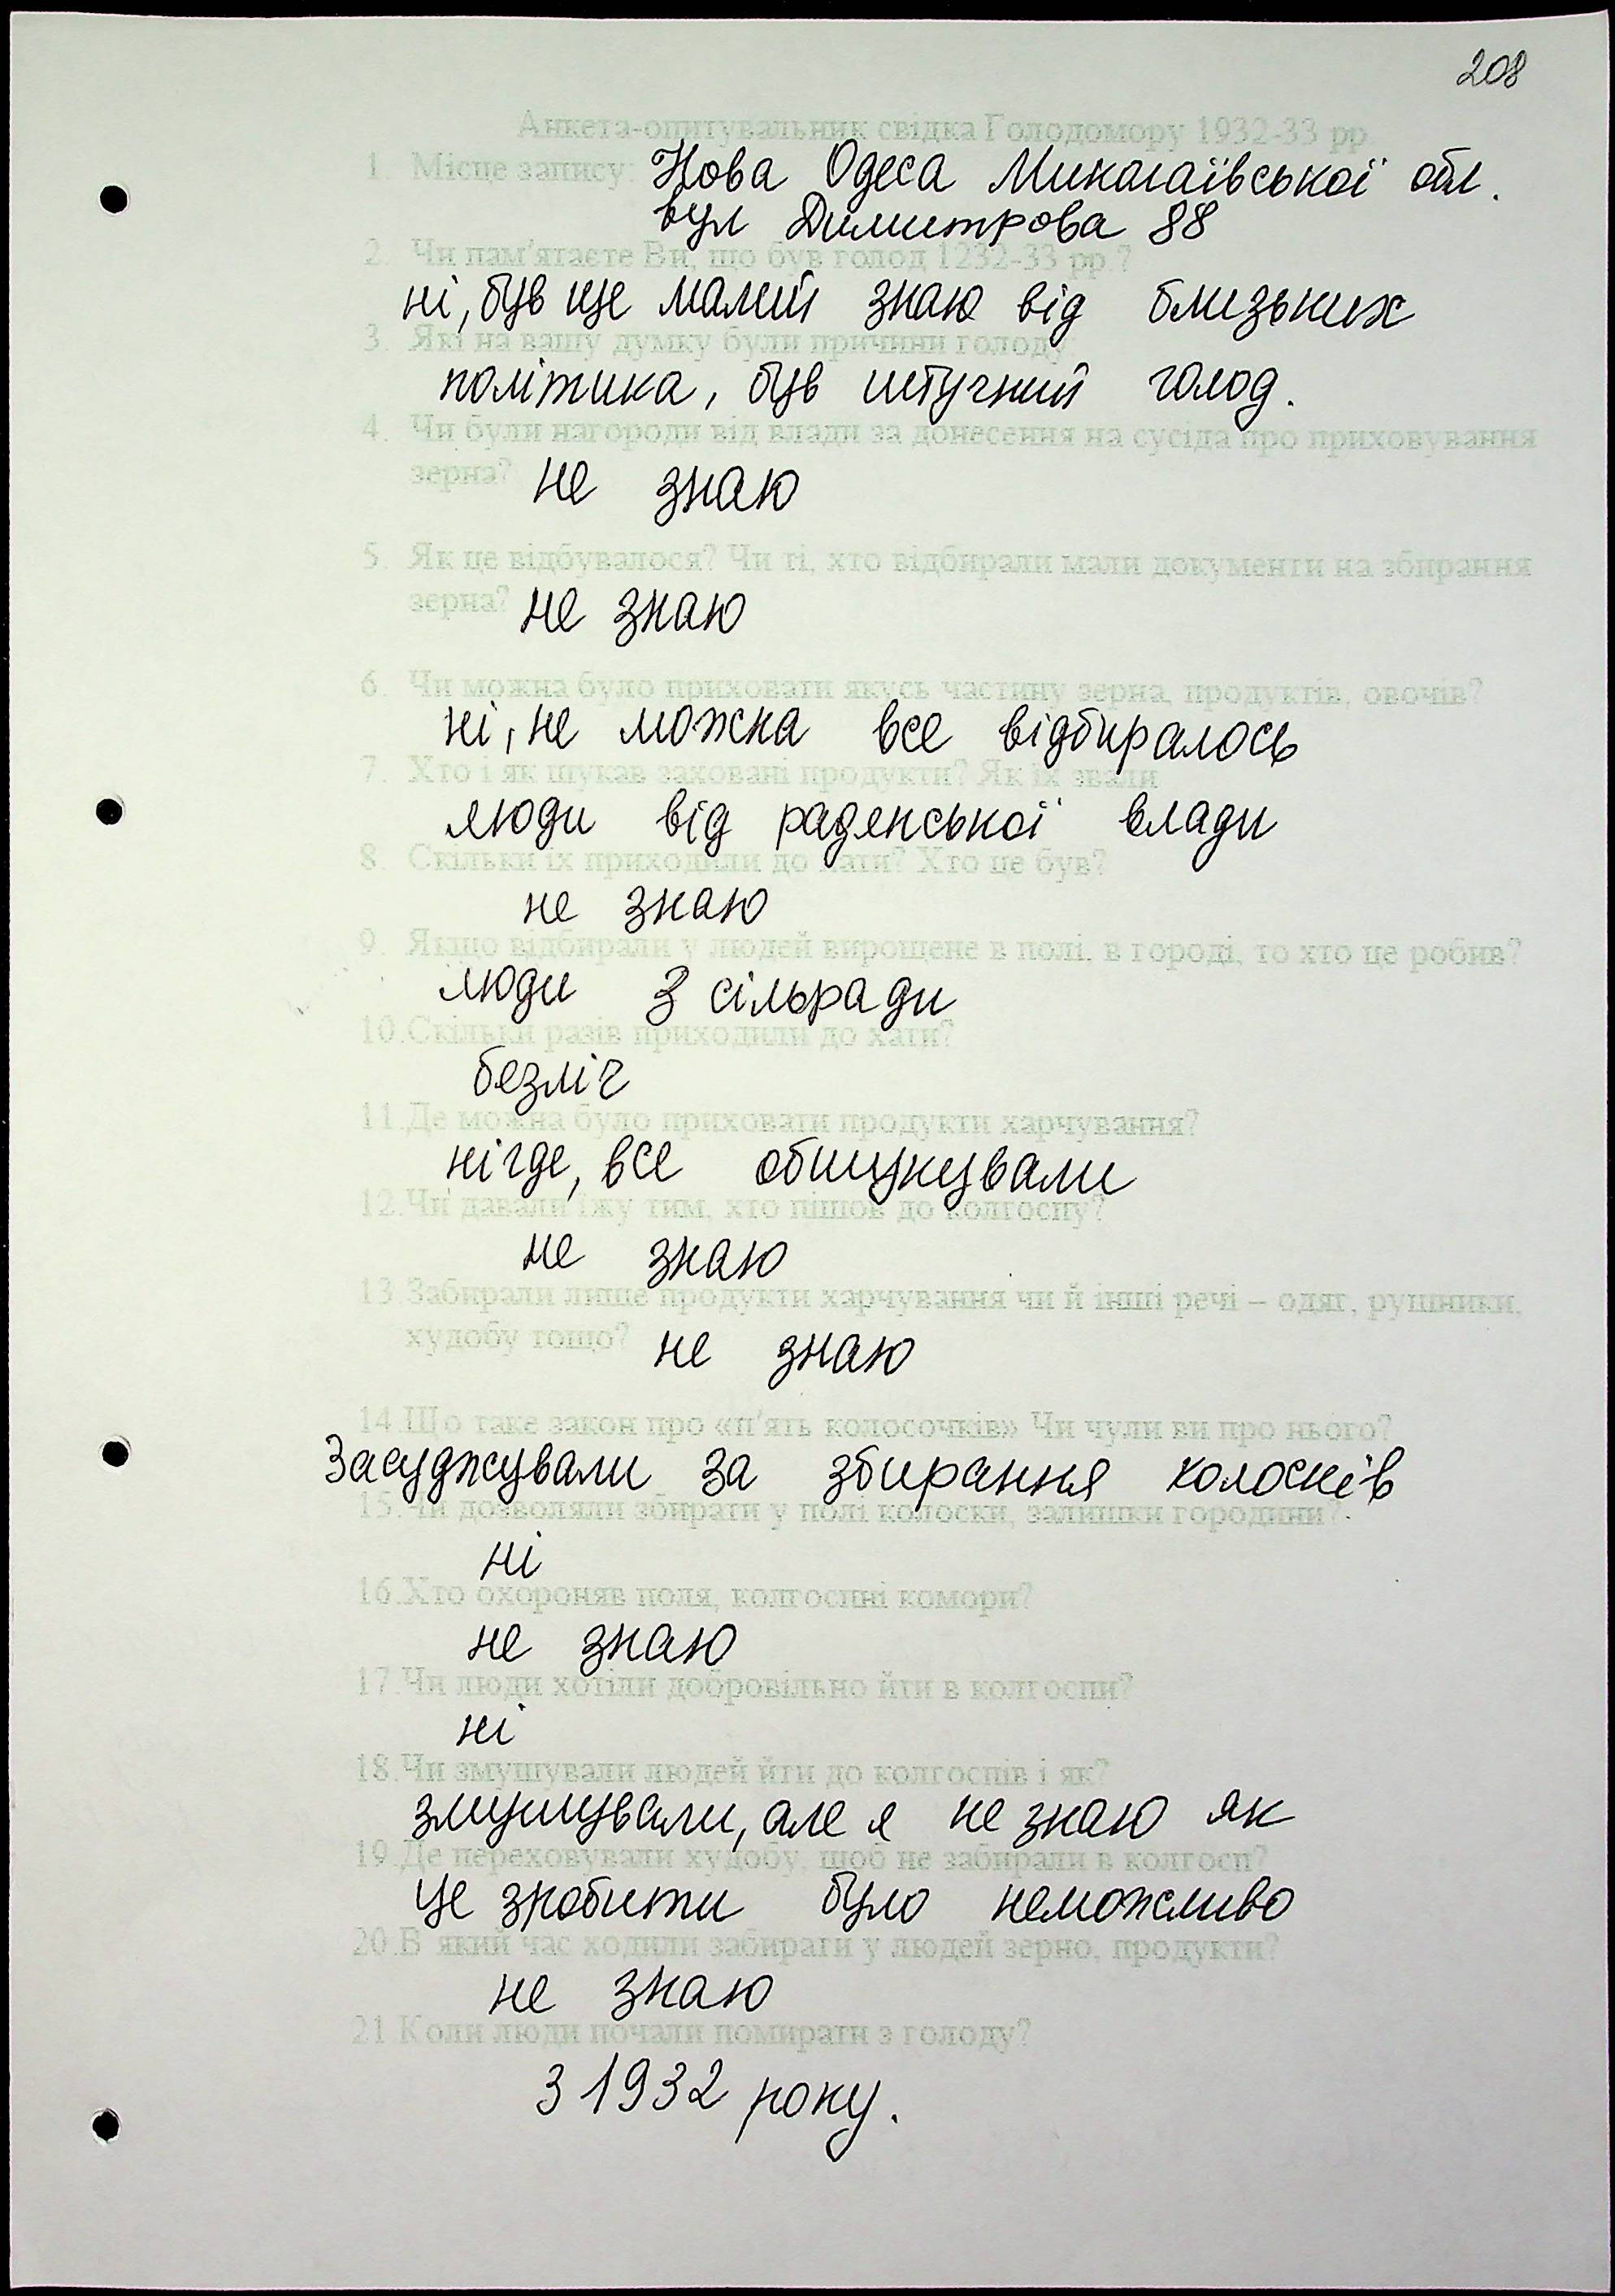 208
Анкета-опитувальник свідка Голодомору 1932-33 рр
1. Місце запису: Нова Одеса Миколаївської обл.
вул Димитрова 88
2. Чи пам'ятаєте Ви, що був голод 1232-33 рр.?
ні, був ще малий знаю від близьких
3. Які на вашу думку були причини голоду
політика, був штучний голод.
4. Чи були нагороди від влади за донесення на сусіда про приховування
зерна? не знаю
5. Як це відбувалося? Чи ті, хто відбирали мали документи на збирання
зерна? не знаю
6. Чи можна було приховати якусь частину зерна, продуктів, овочів?
ні, не можна все відбиралось
7. Хто і як шукав заховані продукти? Як їх звали
люди від радянської влади
8. Скільки їх приходили до хати? Хто це був?
не знаю
9. Якщо відбирали у людей вирощене в полі, в городі, то хто це робив?
люди з сільради
10.Скільки разів приходили до хати?
безліч
11.Де можна було приховати продукти харчування?
нігде, все обшукували
12.Чи давали їжу тим, хто пішов до колгоспу?
не знаю
13.Забирали лише продукти харчування чи й інші речі – одяг, рушники,
худобу тощо? не знаю
14.Що таке закон про «п'ять колосочків» Чи чули ви про нього?
Засуджували за збирання колосків
15.Чи дозволяли збирати у полі колоски, залишки городини?
ні
16.Хто охороняв поля, колгоспні комори?
не знаю
17.Чи люди хотіли добровільно йти в колгоспи?
ні
18.Чи змушували людей йти до колгоспів і як?
змушували, але я не знаю як
19.Де переховували худобу, щоб не забирали в колгосп?
це зробити було неможливо
20.В який час ходили забирати у людей зерно, продукти?
не знаю
21 Коли люди почали помирати з голоду?
З 1932 року.